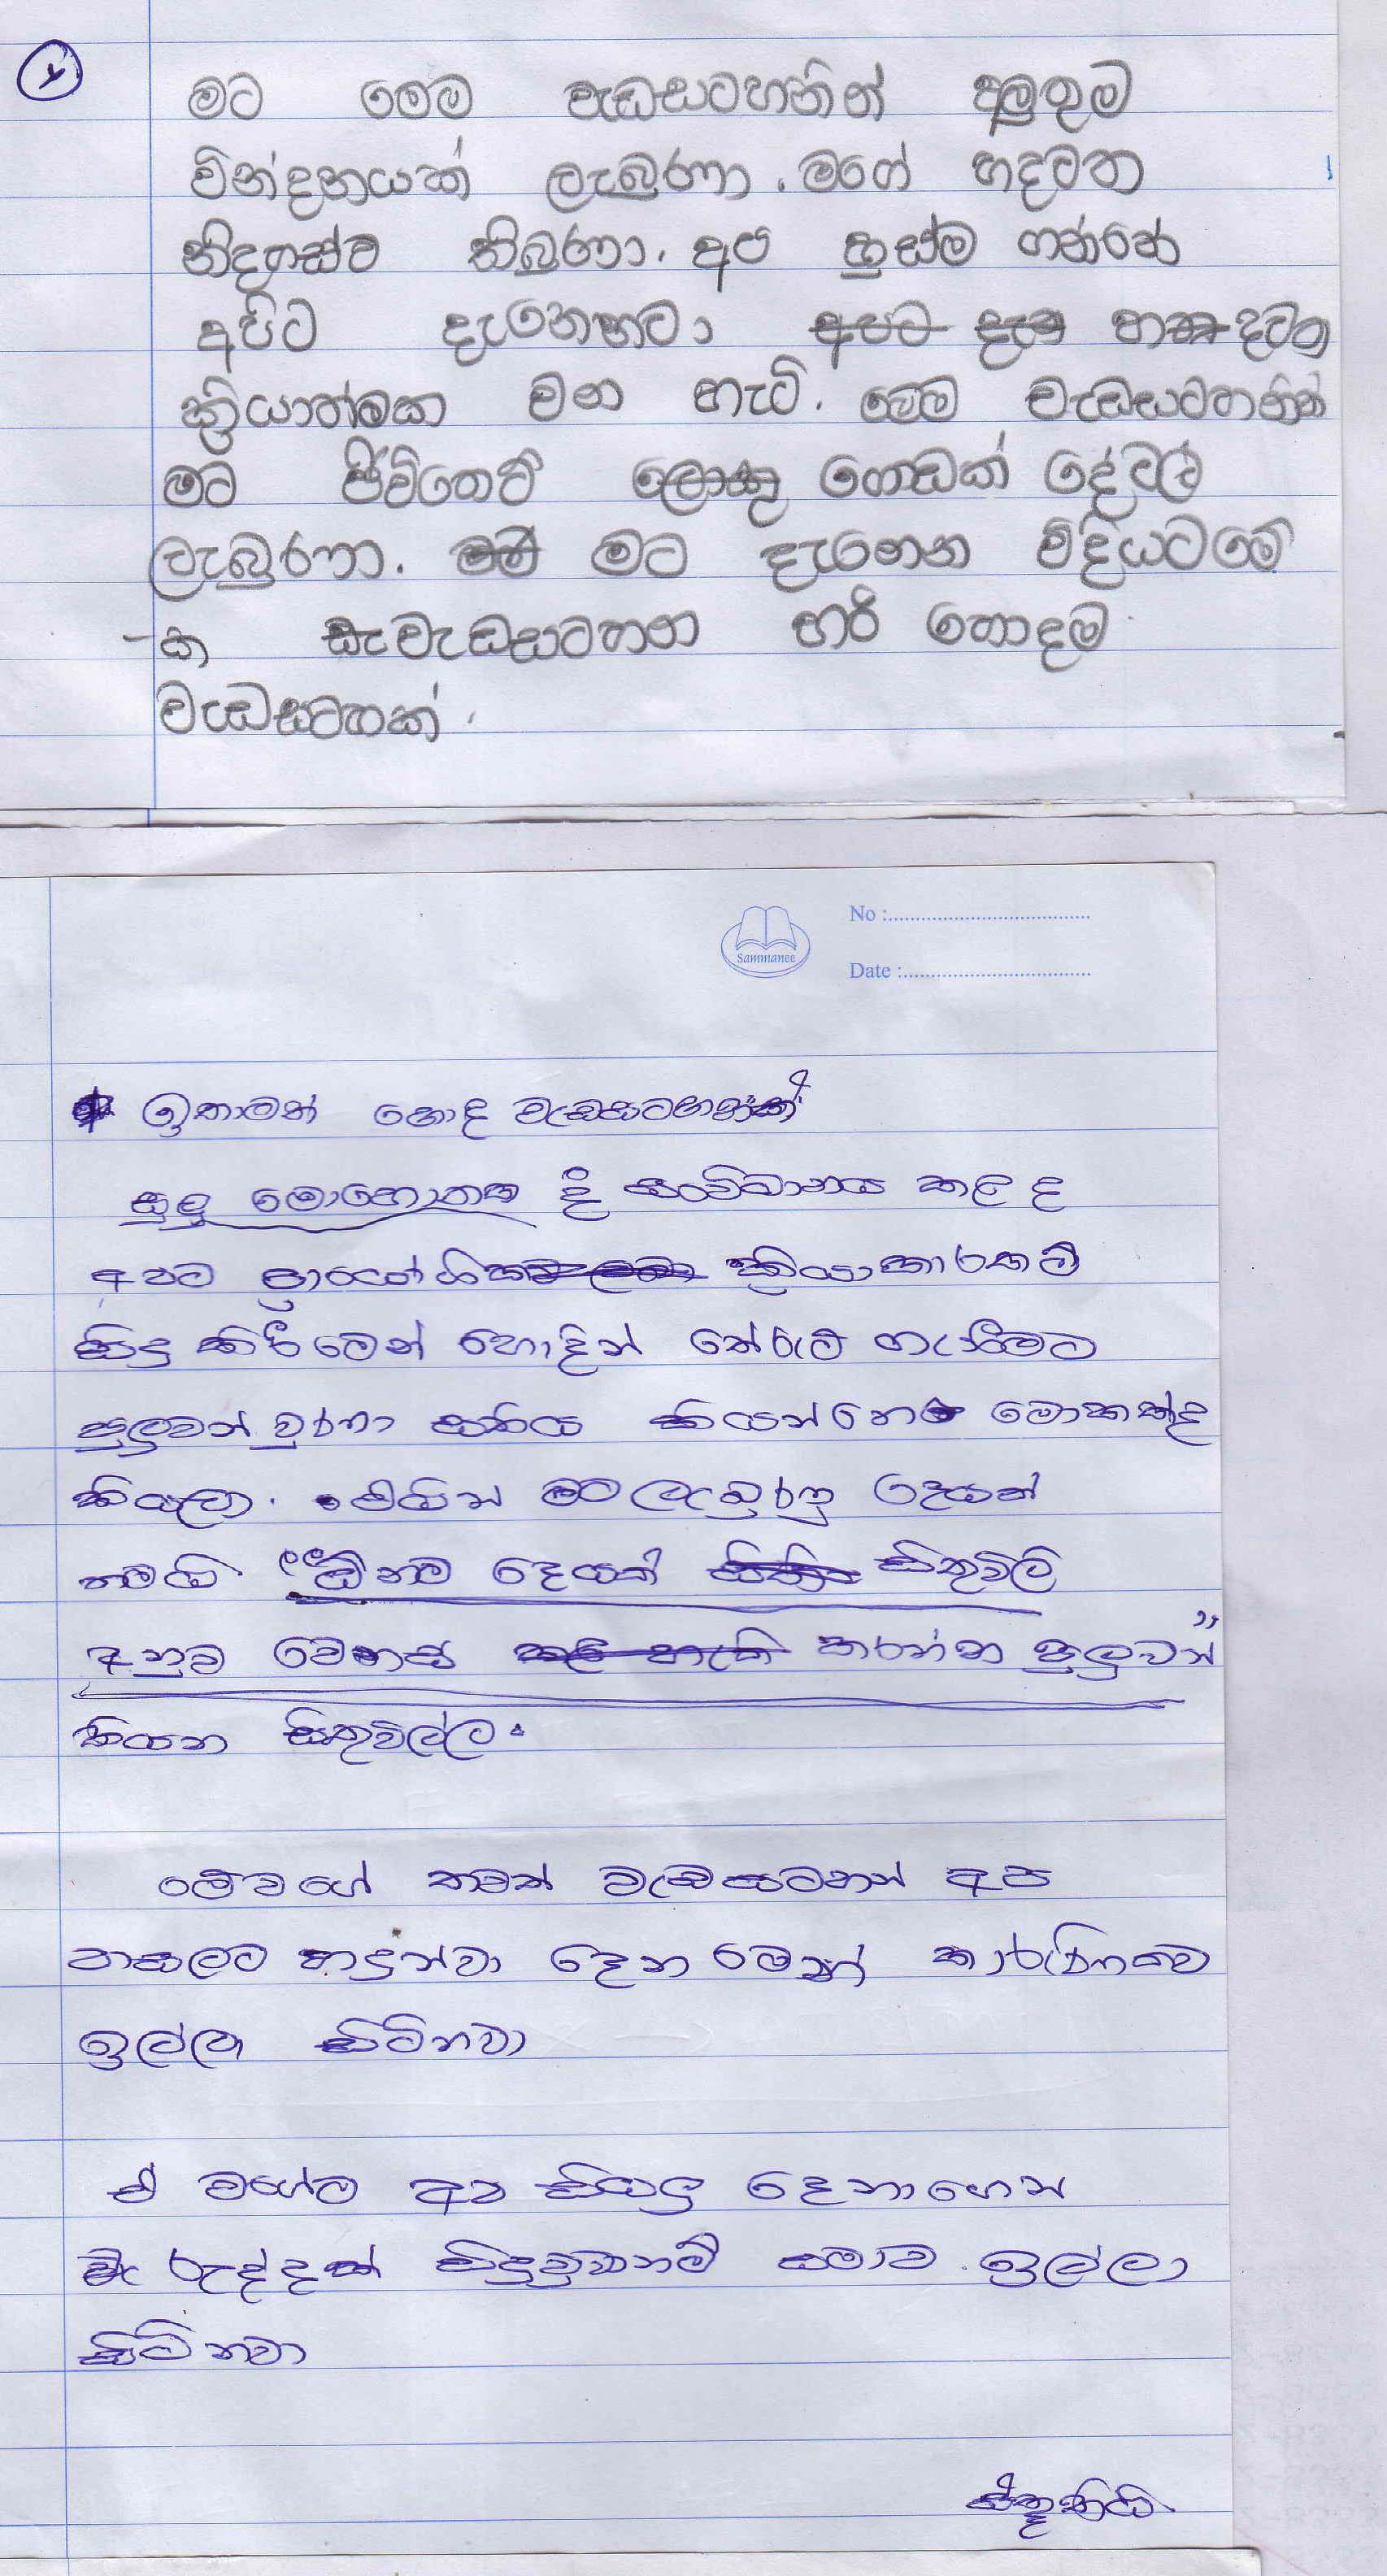 මට මෙම වැඩසටහනින් අලුතුම
වින්දනයක් ලැබුණා. මගේ හදවත
නිදහස්ව තිබුණා. අප හුස්ම ගන්නේ
අපිට දැනෙනවා හදවත
ක්‍රියාත්මක වන හැටි. මෙම වැඩසටහනින්
මට ජීවිතෙට ලොකු ගොඩක් දේවල්
ලැබුණා. මට දැනෙන විදියට මේ
ක වැඩසටහන හරි හොදම
වැඩසටහක්.
Sammanee
No :
Date :
ඉතාමත් හොඳ වැඩසටහනක්
සුලු මොහොතක දී සංවිධානය කළ ද
අපට ප්‍රායෝගිකව ක්‍රියාකාරකම්
සිදු කිරීමෙන් හොදින් තේරුම් ගැනීමට
පුලුවන් වුණා සතිය කියන්නෙ මොකක්ද
කියලා. මෙයින් මට ලැබුණු දෙයක්
තමයි "ඕනම දෙයක් සිතුවිලි
අනුව වෙනස් කරන්න පුලුවන්"
කියන සිතුවිල්ල.
මේවගේ තවත් වැඩසටහන් අප
පාසලට හදුන්වා දෙන මෙන් කාරුණිකව
ඉල්ලා සිටිනවා
ඒ වගේම අප සියලු දෙනාගෙන්
වැරුද්දක් සිදුවුනානම් සමාව ඉල්ලා
සිටිනවා
ස්තූතියි